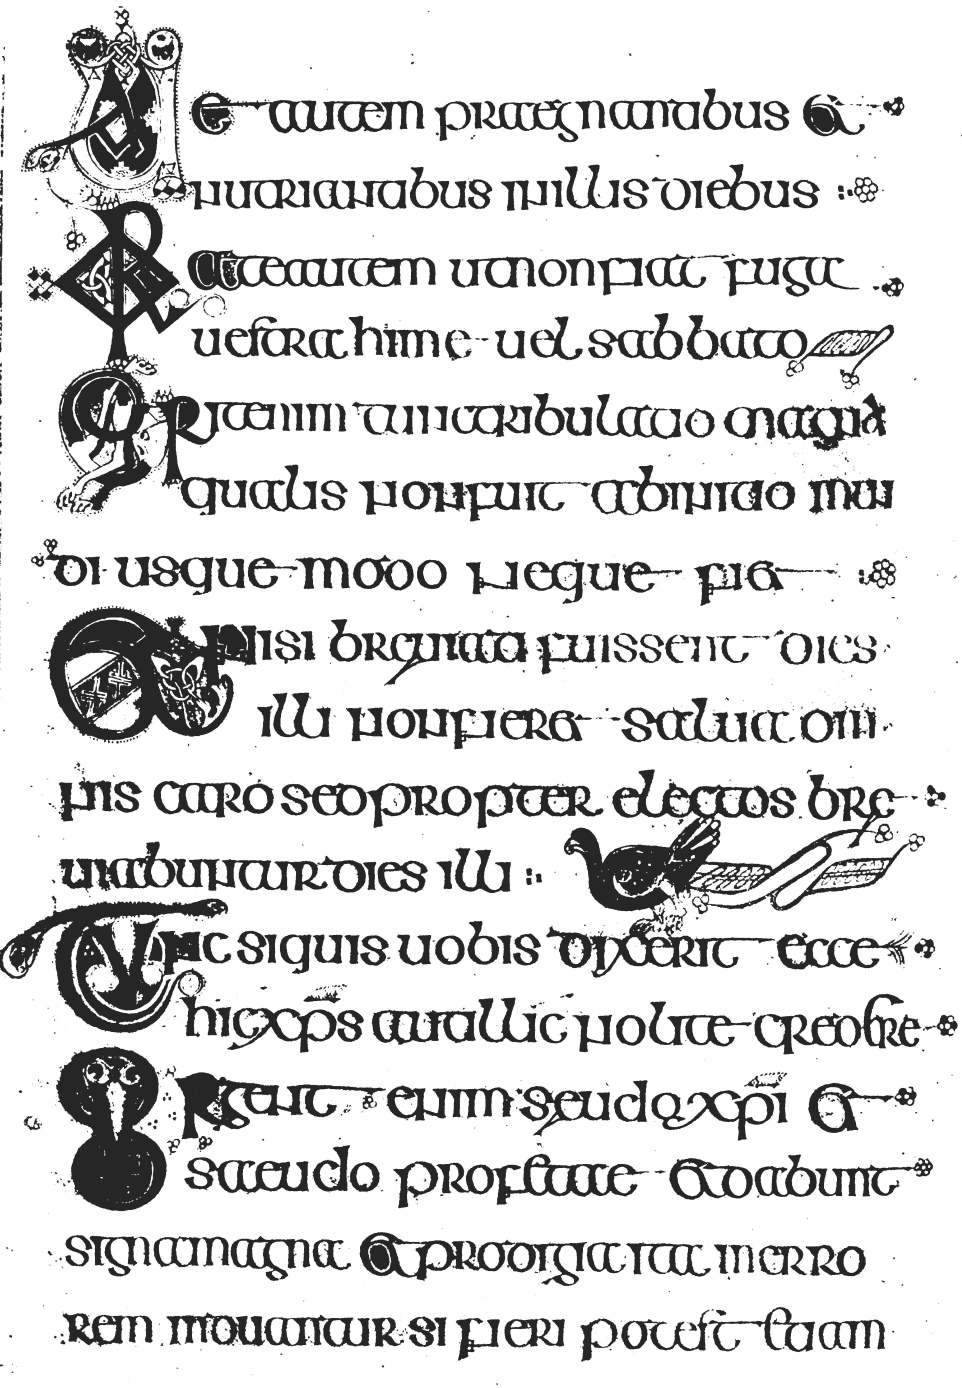 Uae autem praegnantibus et
nutriantibus in illis diebus
Orate autem ut non fiat fuga
uestra hime uel sabbato
Erit enim tunc tribulatio magna
qualis non fuit ab initio mun
di usque modo neque fiet
Et nisi breuiati fuissent dies
illi non fieret salua om
nis caro sed propter electos bre
uiabuntur dies illi
Tunc siquis uobis dixerit ecce
hic xp̄s aut illic nolite credere
Surgent enim seudo xp̄i et
saeudo profetae et dabunt
signa magna et prodigia ita in erro
rem moueantur si fieri potest etiam